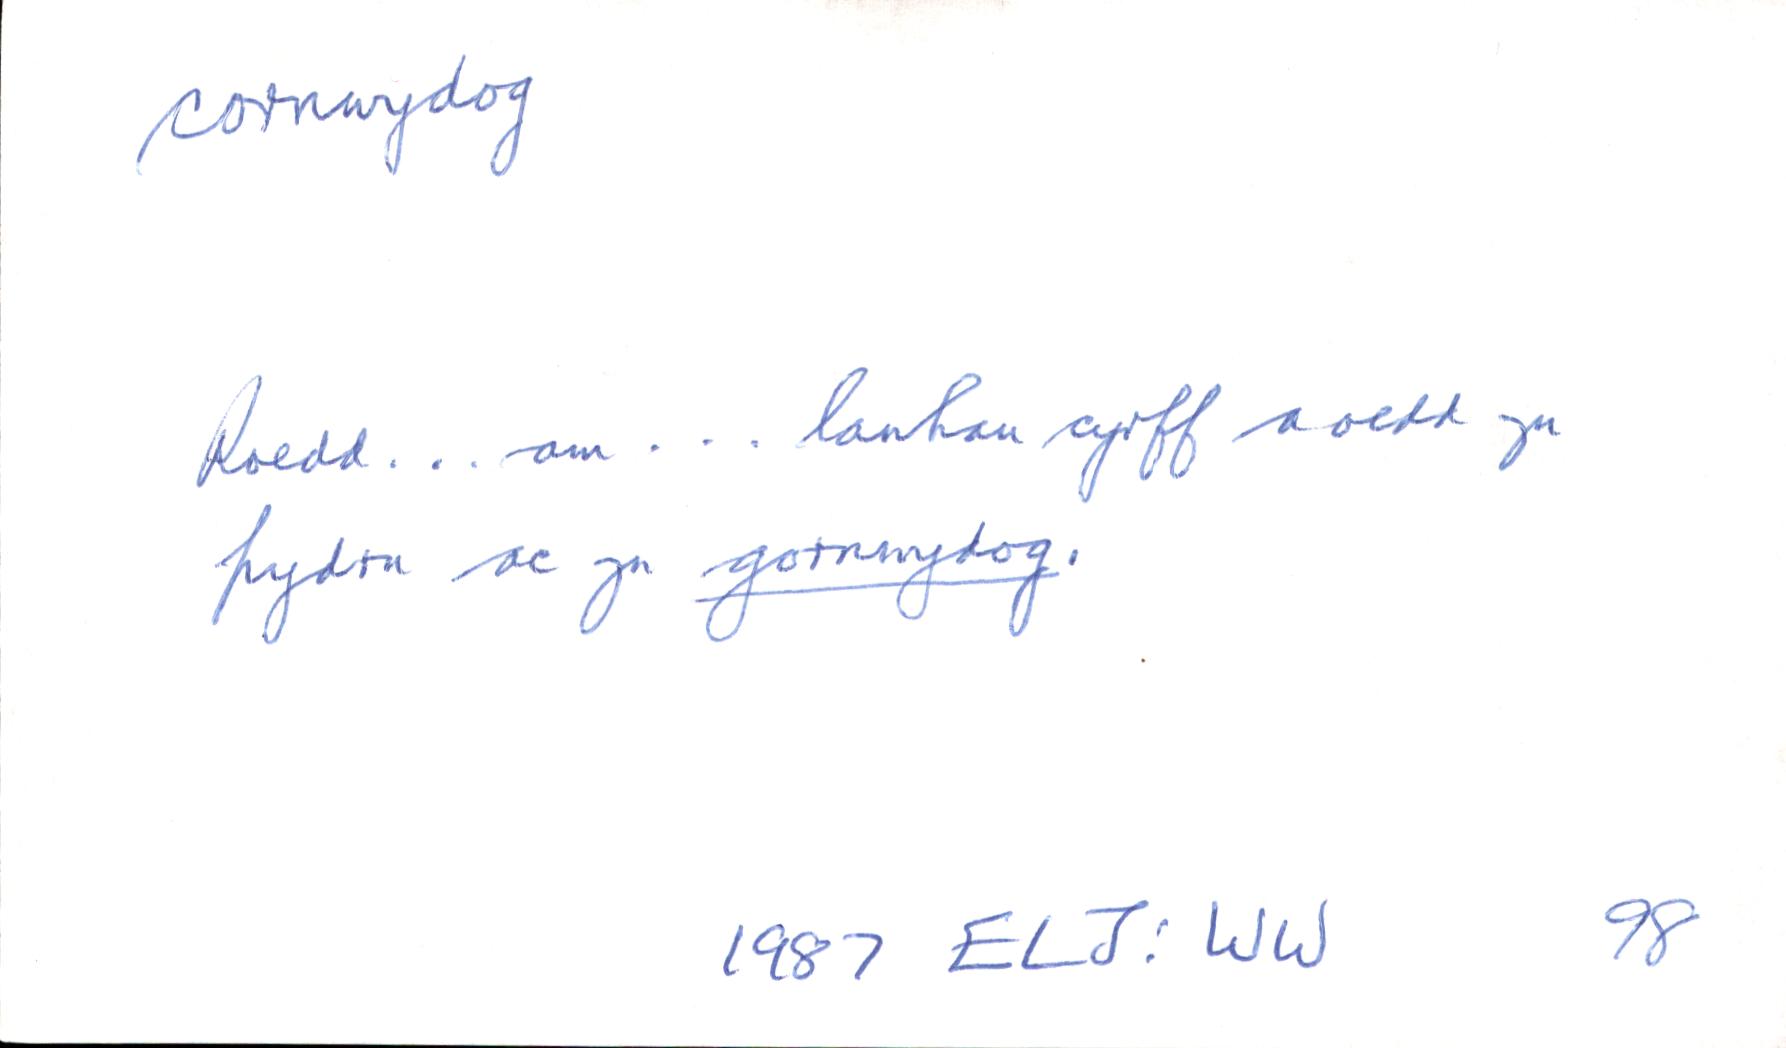 cornwydog
Roedd... am ... lanhau cyrff a oedd yn
pydru ac yn gornwydog.
1987 ELJ: WW 98